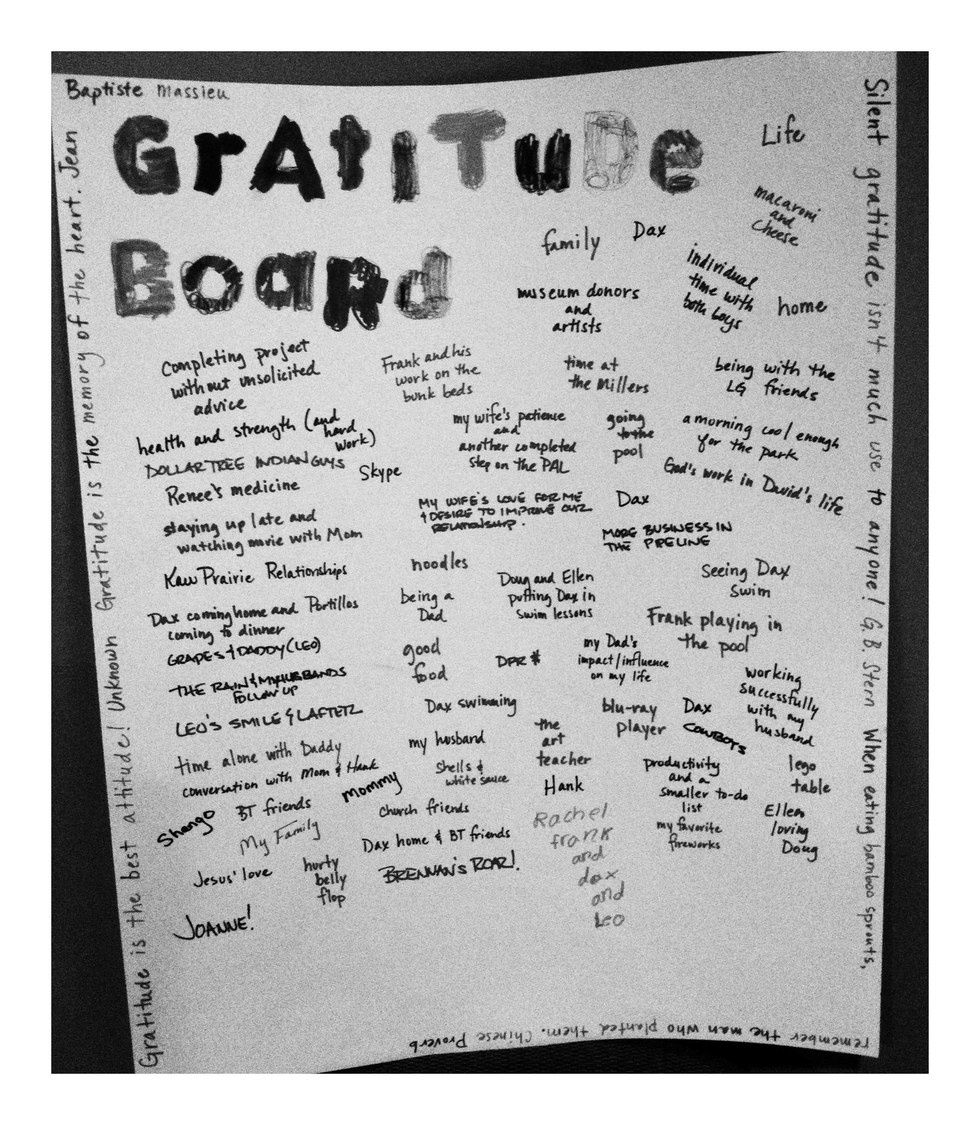 Gratitude is the best attitude! Unknown Gratitude is the memory of the heart. Jean
Baptiste Massieu
GrAtiTude
BoaRd
Silent gratitude isn't much use to anyone! G.B. Stern When eating bamboo sprouts,
remember the man who planted them. Chinese Proverb
Life
macaroni
and
cheese
family
Dax
individual
time with
both boys
home
museum donors
and
artists
completing project
without unsolicited
advice
Frank and his
work on the
bunk beds
time at
the Millers
being with the
LG friends
health and strength (and
hard
work)
my wife's patience
and
another completed
step on the PAL
going
to the
pool
a morning cool enough
for the park
DOLLAR TREE INDIAN GUYS
Skype
God's work in David's life
Renee's medicine
MY WIFE'S LOVE FOR ME
& DESIRE TO IMPROVE OUR
RELATIONSHIP.
Dax
staying up late and
watching movie with Mom
MORE BUSINESS IN
THE PIPELINE
Kaw Prairie Relationships
noodles
Doug and Ellen
putting Dax in
swim lessons
Seeing Dax
Swim
Dax coming home and Portillos
coming to dinner
being a
Dad
Frank playing in
the pool
GRAPES & DADDY (LEO)
good
food
DPR $
my Dad's
impact/influence
on my life
THE RAIN & MY HUSBANDS
FOLLOW UP
working
successfully
with my
husband
LEO'S SMILE & LAFTER
Dax swimming
blu-ray
player
Dax
COWBOYS
time alone with Daddy
my husband
the
art
teacher
conversation with Mom & Hank
Shells &
white sauce
productivity
and a
smaller to-do
list
lego
table
Mommy
Hank
Shango
BT friends
Church friends
Ellen
loving
Doug
My Family
Dax home & BT friends
Rachel
frank
and
dax
and
Leo
my favorite
fireworks
Jesus' love
hurty
belly
flop
BRENNAN'S ROAR!
JOANNE!